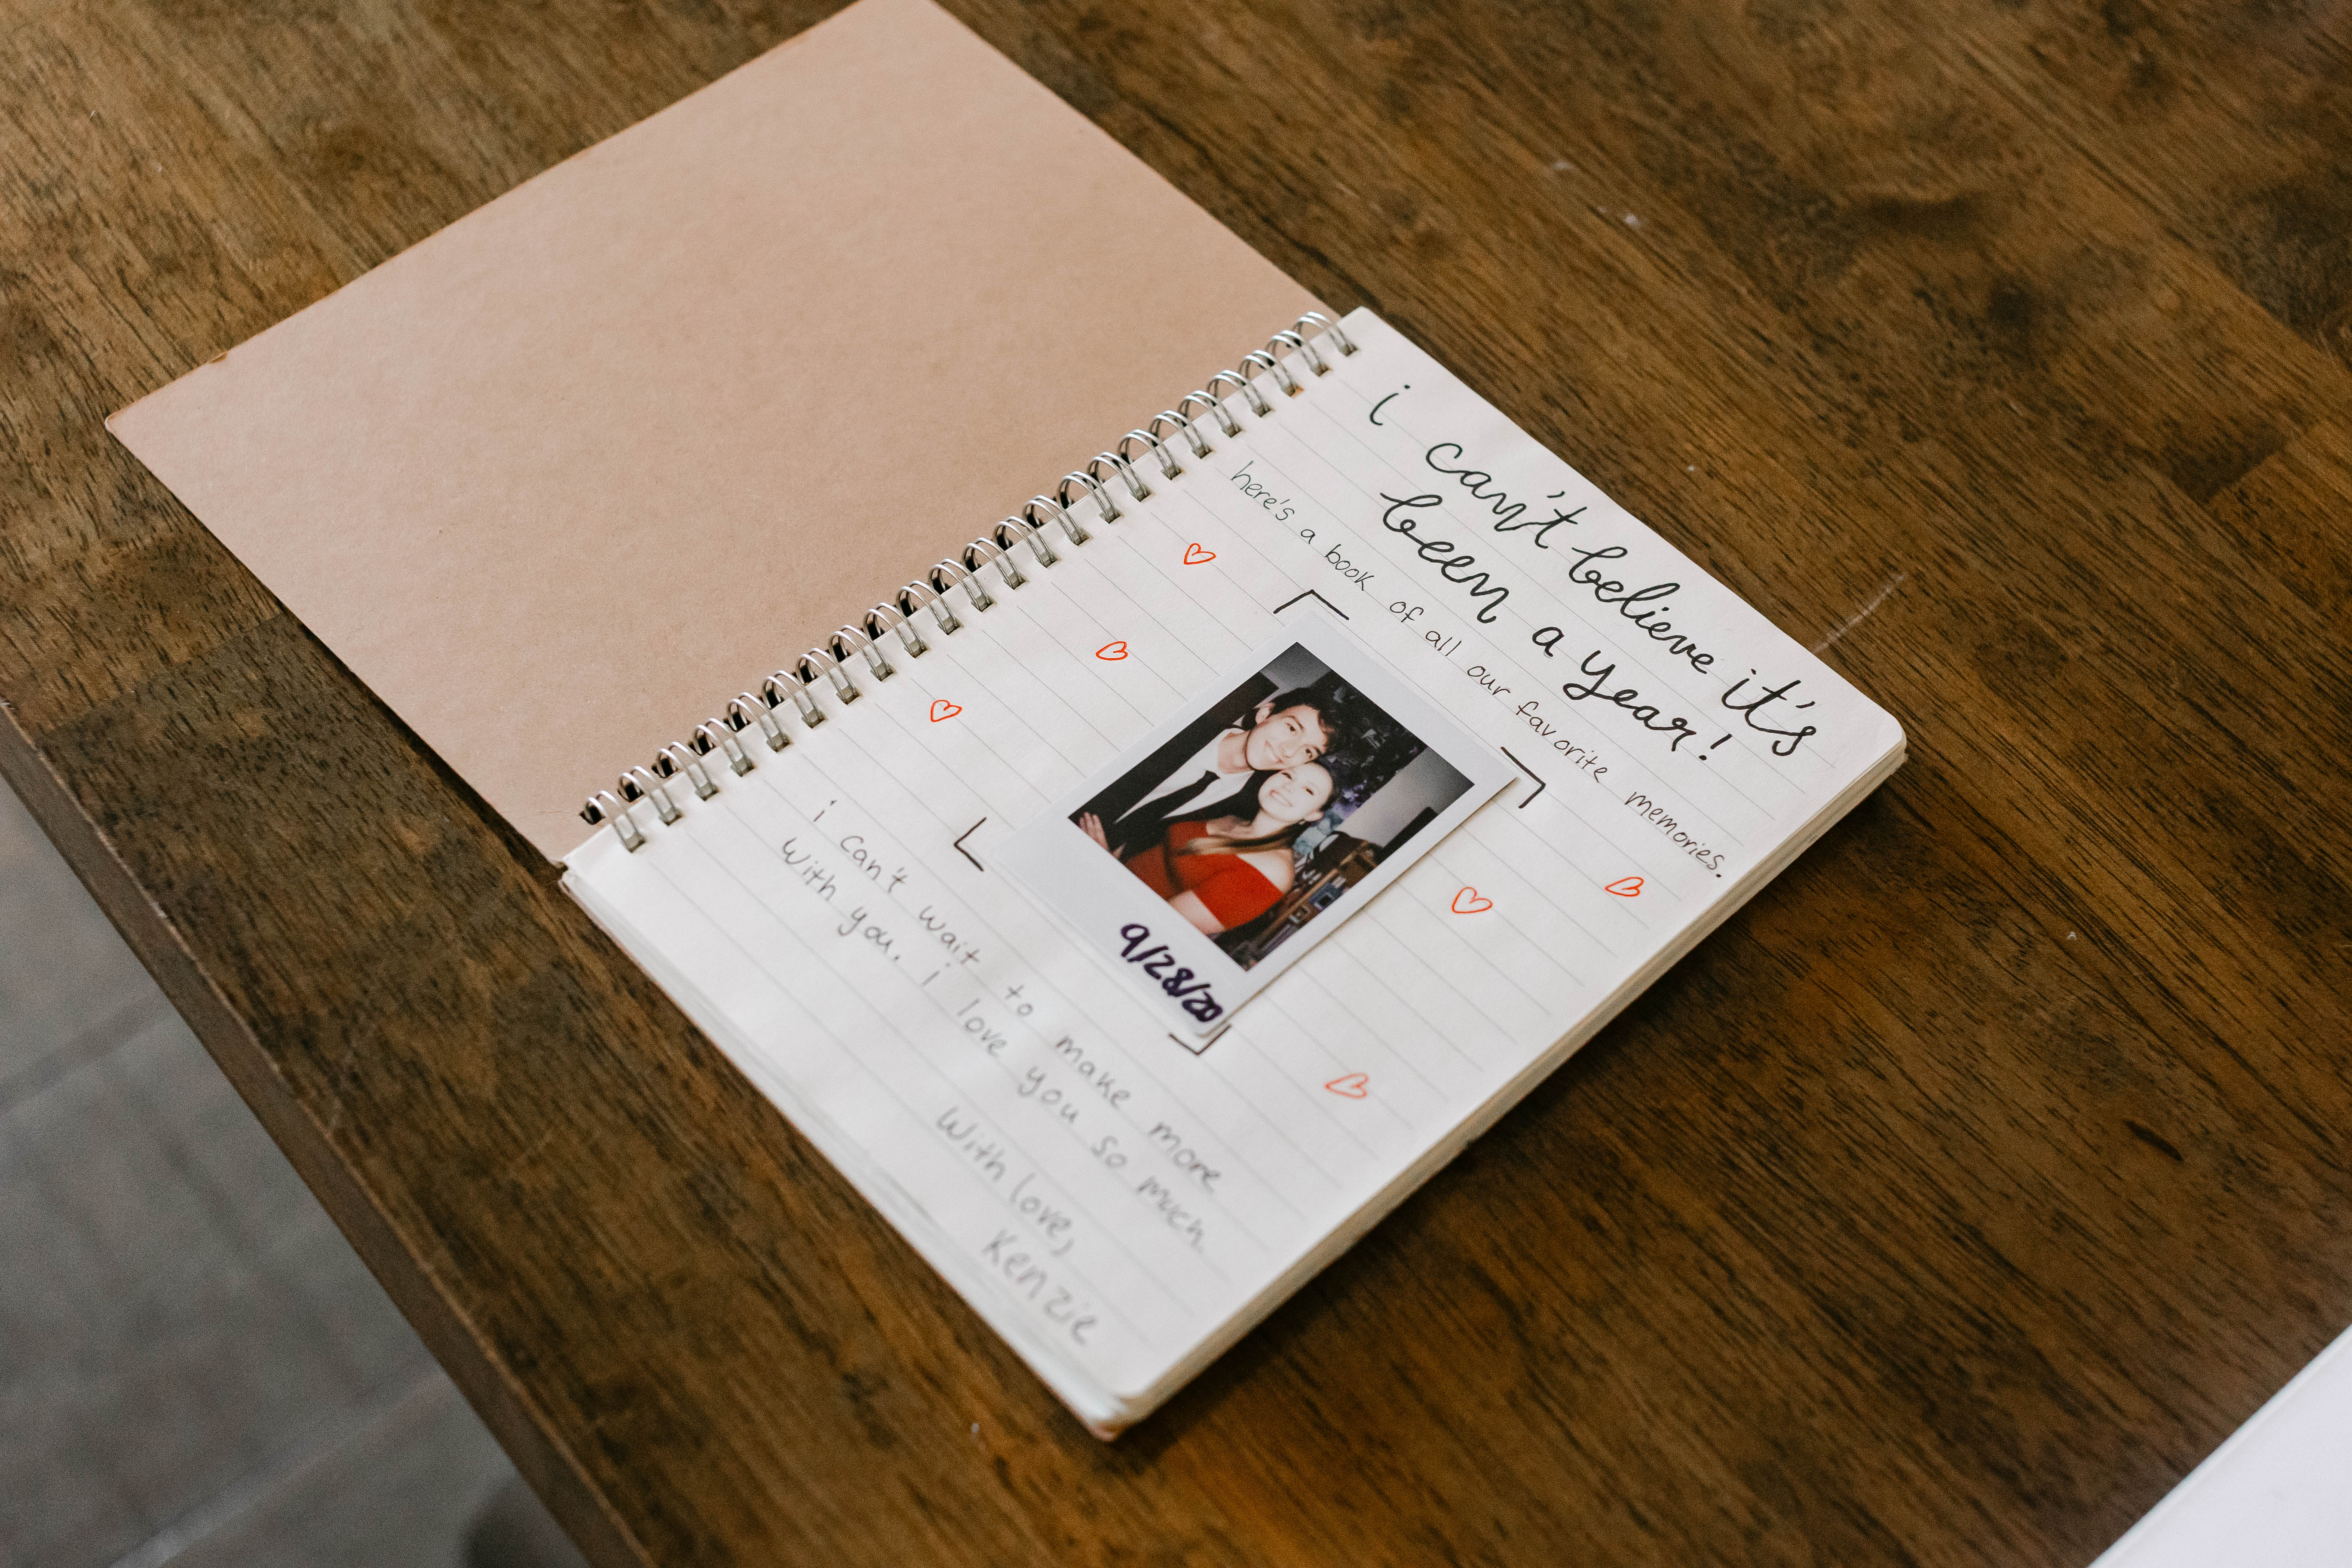 i can't believe it's
been a year!
here's a book of all our favorite memories.
9/28/20
i can't wait to make more
with you. i love you so much
With love,
Kenzie